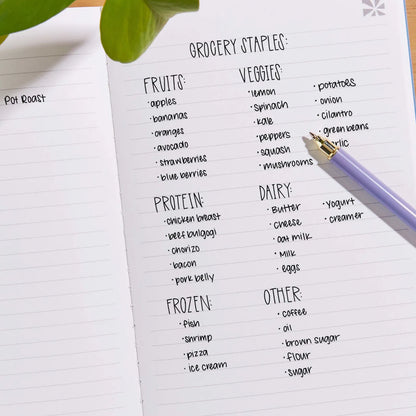 Pot Roast
GROCERY STAPLES:
FRUITS:
• apples
• bananas
• oranges
• avocado
• strawberries
• blue berries
VEGGIES:
• lemon
• Spinach
• kale
• peppers
• squash
• mushrooms
• potatoes
• onion
• cilantro
• green beans
PROTEIN:
• chicken breast
• beef bulgogi
• chorizo
• bacon
• pork belly
DAIRY:
• Butter
• cheese
• oat milk
• Milk
• eggs
• Yogurt
• creamer
FROZEN:
• fish
• shrimp
• pizza
• ice cream
OTHER:
• coffee
• oil
• brown sugar
• flour
• sugar